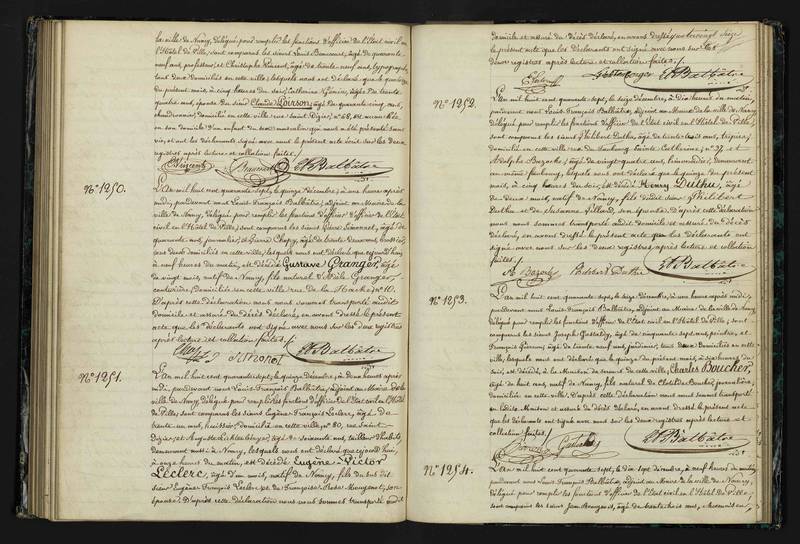 la ville de Nancy, délégué pour remplir les fonctions d'officier de l'Etat civil en
l'Hôtel de Ville, sont comparus les sieurs Louis Beaucourt, âgé de quarante
neuf ans, professeur et Christophe Vincent, âgé de trente neuf ans, typographe,
tous deux domiciliés en cette ville; lesquels nous ont déclaré que le quinze
du présent mois, à cinq heures du soir, Catherine âgée de trente
quatre ans, épouse du sieur Claude Poirson, âgé de quarante cinq ans,
domicilié en cette ville rue Saint Dizier, n° 68, est accouchée
en son domicile d'un enfant du sexe masculin qui nous a été présenté sans
vie; et ont les déclarants signé avec nous le présent acte écrit sur les deux
registres après lecture et collation faites.
Vincent L. Balbâtre
N° 1250.
L'An mil huit cent quarante sept, le quinze décembre, à une heure après
midi, pardevant nous Louis François Balbâtre, adjoint au Maire de la
ville de Nancy, délégué pour remplir les fonctions d'officier de l'Etat
civil en l'Hôtel de Ville, sont comparus les sieurs Pierre Simonot, âgé de
quarante ans, journalier, et Pierre Chapy, âgé de trente deux ans,
tous deux domiciliés en cette ville, lesquels nous ont déclaré que cejourd'hui
à neuf heures du matin, est décédé Gustave Granger, âgé
de vingt mois, natif de Nancy, fils naturel d'Adèle Granger,
couturière, domiciliée en cette ville rue de la Hache, n° 10.
D'après cette déclaration nous nous sommes transporté audit
domicile et assuré du décès déclaré, en avons dressé le présent
acte que les déclarants ont signé avec nous sur les deux registres
après lecture et collation faites.
Chapy Simonot L. Balbâtre
N° 1251.
L'An mil huit cent quarante sept, le quinze décembre, à deux heures après
midi, pardevant nous Louis François Balbâtre, adjoint au Maire de la
ville de Nancy, délégué pour remplir les fonctions d'officier de l'Etat civil en l'Hôtel
de Ville, sont comparus les sieurs Eugène François Leclerc, âgé de
trente un ans, huissier, domicilié en cette ville, n° 80, rue Saint
Dizier, et Auguste âgé de soixante ans, tailleur d'habits,
demeurant aussi à Nancy, lesquels nous ont déclaré que cejourd'hui,
à onze heures du matin, est décédé Eugène Victor
Leclerc, âgé d'un mois, natif de Nancy, fils du susdit
sieur Eugène François Leclerc et de Françoise Rosa Mougenot, son
épouse. D'après cette déclaration nous nous sommes transporté audit
domicile et assuré du décès déclaré, en avons dressé
le présent acte que les déclarants ont signé avec nous sur les
deux registres après lecture et collation faites.
L. Balbâtre
N° 1252.
L'An mil huit cent quarante sept, le seize décembre, à dix heures du matin,
pardevant nous Louis François Balbâtre, adjoint au Maire de la ville de Nancy,
délégué pour remplir les fonctions d'officier de l'Etat civil en l'Hôtel de Ville,
sont comparus les sieurs Philibert Duthu, âgé de trente huit ans, tripier,
domicilié en cette ville rue du Faubourg Sainte Catherine, n° 37, et
Adolphe Bazoche, âgé de vingt quatre ans, demeurant
en même faubourg, lesquels nous ont déclaré que le quinze du présent
mois, à cinq heures du soir, est décédé Henry Duthu, âgé
de deux mois, natif de Nancy, fils dudit sieur Philibert
Duthu et de Suzanne son épouse. D'après cette déclaration
nous nous sommes transporté audit domicile et assuré du décès
déclaré, en avons dressé le présent acte que les déclarants ont
signé avec nous sur les deux registres, après lecture et collation
faites.
Philibert Duthu L. Balbâtre
N° 1253.
L'An mil huit cent quarante sept, le seize décembre, à une heure après midi,
pardevant nous Louis François Balbâtre, adjoint au Maire de la ville de Nancy
délégué pour remplir les fonctions d'officier de l'Etat civil en l'Hôtel de Ville, sont
comparus les sieurs Joseph âgé de cinquante sept ans, peintre, et
François âgé de trente neuf ans, jardinier, tous deux domiciliés en cette
ville, lesquels nous ont déclaré que le quinze du présent mois, à six heures du
soir, est décédé, à la Maison de secours de cette ville, Charles Boucher,
âgé de huit ans, natif de Nancy, fils naturel de Clotilde Boucher, journalière,
domiciliée en cette ville. D'après cette déclaration nous nous sommes transporté
en ladite Maison et assuré du décès déclaré, en avons dressé le présent acte
que les déclarants ont signé avec nous sur les deux registres après lecture et
collation faites.
L. Balbâtre
N° 1254.
L'An mil huit cent quarante sept, le dix sept décembre, à neuf heures du matin,
pardevant nous Louis François Balbâtre, adjoint au Maire de la ville de Nancy,
délégué pour remplir les fonctions d'officier de l'Etat civil en l'Hôtel de Ville,
sont comparus les sieurs Jean âgé de trente huit ans,